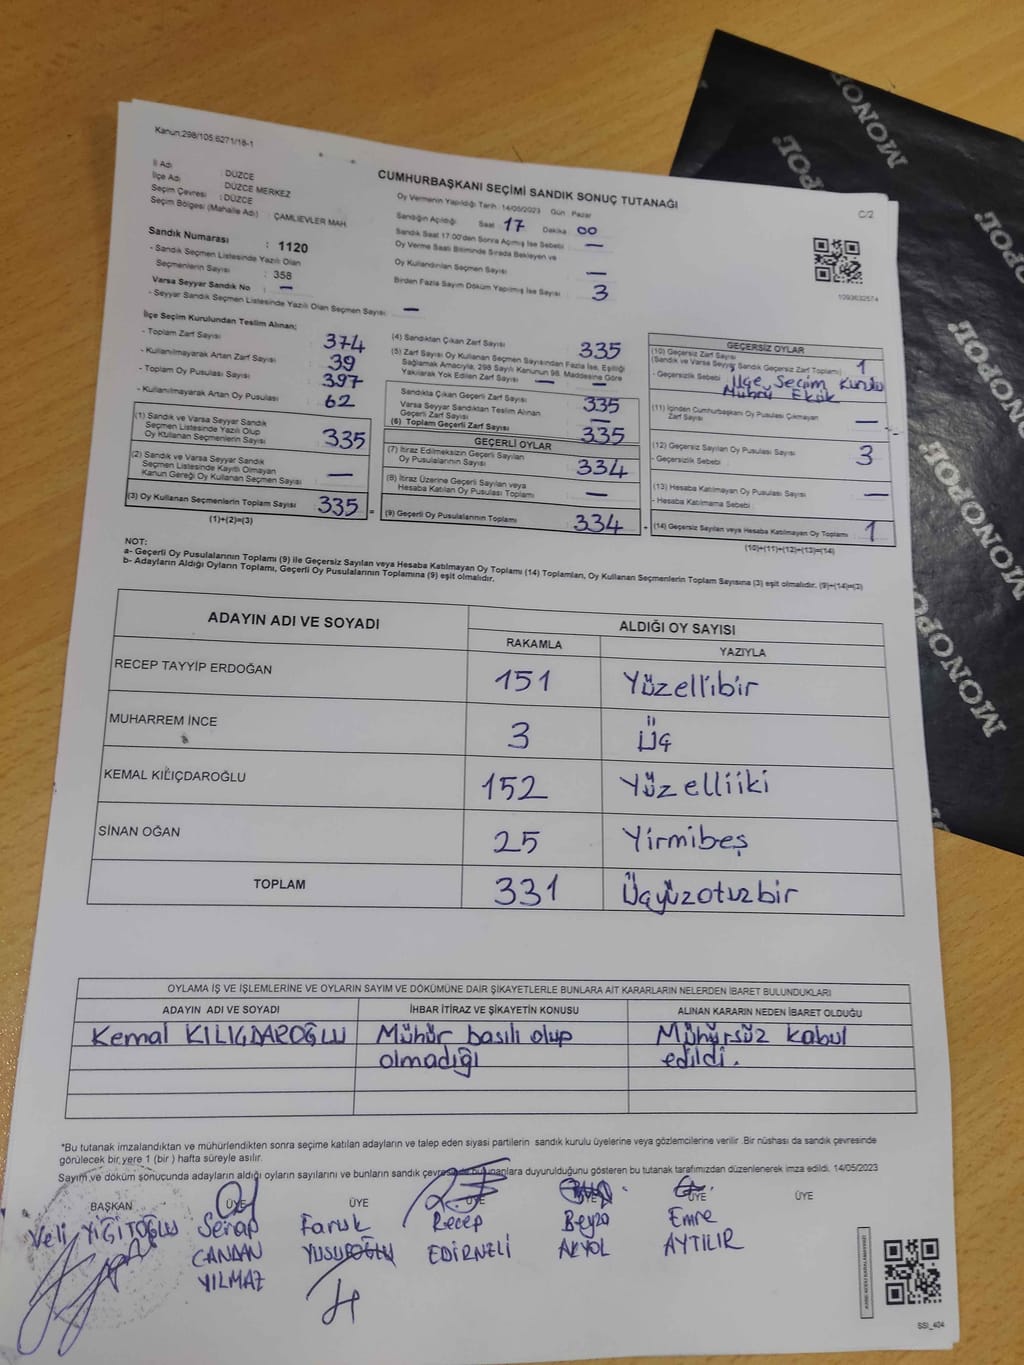 Kanun:298/105:6271/18-1
CUMHURBAŞKANI SEÇİMİ SANDIK SONUÇ TUTANAĞI
C/2
İl Adı : DÜZCE
İlçe Adı : DÜZCE MERKEZ
Seçim Çevresi : DÜZCE
Seçim Bölgesi (Mahalle Adı) : ÇAMLIEVLER MAH.
Sandık Numarası : 1120
- Sandık Seçmen Listesinde Yazılı Olan
Seçmenlerin Sayısı : 358
Varsa Seyyar Sandık No : —
- Seyyar Sandık Seçmen Listesinde Yazılı Olan Seçmen Sayısı : —
Oy Vermenin Yapıldığı Tarih :14/05/2023 Gün : Pazar
Sandığın Açıldığı : Saat : 17 Dakika : 00
Sandık Saat 17:00'den Sonra Açılmış İse Sebebi : —
Oy Verme Saati Bitiminde Sırada Bekleyen ve
Oy Kullandırılan Seçmen Sayısı : —
Birden Fazla Sayım Döküm Yapılmış İse Sayısı : 3
1093632574
İlçe Seçim Kurulundan Teslim Alınan;
- Toplam Zarf Sayısı : 374
- Kullanılmayarak Artan Zarf Sayısı : 39
- Toplam Oy Pusulası Sayısı : 397
- Kullanılmayarak Artan Oy Pusulası : 62
(1) Sandık ve Varsa Seyyar Sandık
Seçmen Listesinde Yazılı Olup
Oy Kullanan Seçmenlerin Sayısı : 335
(2) Sandık ve Varsa Seyyar Sandık
Seçmen Listesinde Kayıtlı Olmayan
Kanun Gereği Oy Kullanan Seçmen Sayısı : —
(3) Oy Kullanan Seçmenlerin Toplam Sayısı : 335 =
(1)+(2)=(3)
(4) Sandıktan Çıkan Zarf Sayısı : 335
(5) Zarf Sayısı Oy Kullanan Seçmen Sayısından Fazla İse, Eşitliği
Sağlamak Amacıyla, 298 Sayılı Kanunun 98. Maddesine Göre
Yakılarak Yok Edilen Zarf Sayısı : —
Sandıkta Çıkan Geçerli Zarf Sayısı : 335
Varsa Seyyar Sandıktan Teslim Alınan
Geçerli Zarf Sayısı : —
(6) Toplam Geçerli Zarf Sayısı : 335
GEÇERLİ OYLAR
(7) İtiraz Edilmeksizin Geçerli Sayılan
Oy Pusulalarının Sayısı : 334
(8) İtiraz Üzerine Geçerli Sayılan veya
Hesaba Katılan Oy Pusulası Toplamı : —
(9) Geçerli Oy Pusulalarının Toplamı : 334 +
GEÇERSİZ OYLAR
(10) Geçersiz Zarf Sayısı
(Sandık ve Varsa Seyyar Sandık Geçersiz Zarf Toplamı) : 1
- Geçersizlik Sebebi : İlçe Seçim Kurulu
Mührü Eksik
(11) İçinden Cumhurbaşkanı Oy Pusulası Çıkmayan
Zarf Sayısı : —
(12) Geçersiz Sayılan Oy Pusulası Sayısı : 3
- Geçersizlik Sebebi :
(13) Hesaba Katılmayan Oy Pusulası Sayısı : —
- Hesaba Katılmama Sebebi :
(14) Geçersiz Sayılan veya Hesaba Katılmayan Oy Toplamı : 1
(10)+(11)+(12)+(13)=(14)
NOT:
a- Geçerli Oy Pusulalarının Toplamı (9) ile Geçersiz Sayılan veya Hesaba Katılmayan Oy Toplamı (14) Toplamları, Oy Kullanan Seçmenlerin Toplam Sayısına (3) eşit olmalıdır. (9)+(14)=(3)
b- Adayların Aldığı Oyların Toplamı, Geçerli Oy Pusulalarının Toplamına (9) eşit olmalıdır.
ADAYIN ADI VE SOYADI ALDIĞI OY SAYISI
RAKAMLA YAZIYLA
RECEP TAYYİP ERDOĞAN 151 Yüzellibir
MUHARREM İNCE 3 Üç
KEMAL KILIÇDAROĞLU 152 Yüz elliiki
SİNAN OĞAN 25 Yirmibeş
TOPLAM 331 Üçyüzotuzbir
OYLAMA İŞ VE İŞLEMLERİNE VE OYLARIN SAYIM VE DÖKÜMÜNE DAİR ŞİKAYETLERLE BUNLARA AİT KARARLARIN NELERDEN İBARET BULUNDUKLARI
ADAYIN ADI VE SOYADI İHBAR İTİRAZ VE ŞİKAYETİN KONUSU ALINAN KARARIN NEDEN İBARET OLDUĞU
Kemal KILIÇDAROĞLU Mühür basılı olup Mühürsüz kabul
olmadığı edildi.
*Bu tutanak imzalandıktan ve mühürlendikten sonra seçime katılan adayların ve talep eden siyasi partilerin sandık kurulu üyelerine veya gözlemcilerine verilir. Bir nüshası da sandık çevresinde
görülecek bir yere 1 (bir) hafta süreyle asılır.
Sayım ve döküm sonucunda adayların aldığı oyların sayılarını ve bunların sandık çevresinde bulunanlara duyurulduğunu gösteren bu tutanak tarafımızdan düzenlenerek imza edildi. 14/05/2023
BAŞKAN ÜYE ÜYE ÜYE ÜYE ÜYE ÜYE
Veli YİĞİTOĞLU Serap Faruk Recep Beyza Emre
CANDAN YUSUFOĞLU EDİRNELİ AKYOL AYTILIR
YILMAZ
SSI_404
MONOPOL
MONOPOL
MONOPOL
MONOPOL
MONOPOL
MONOPOL